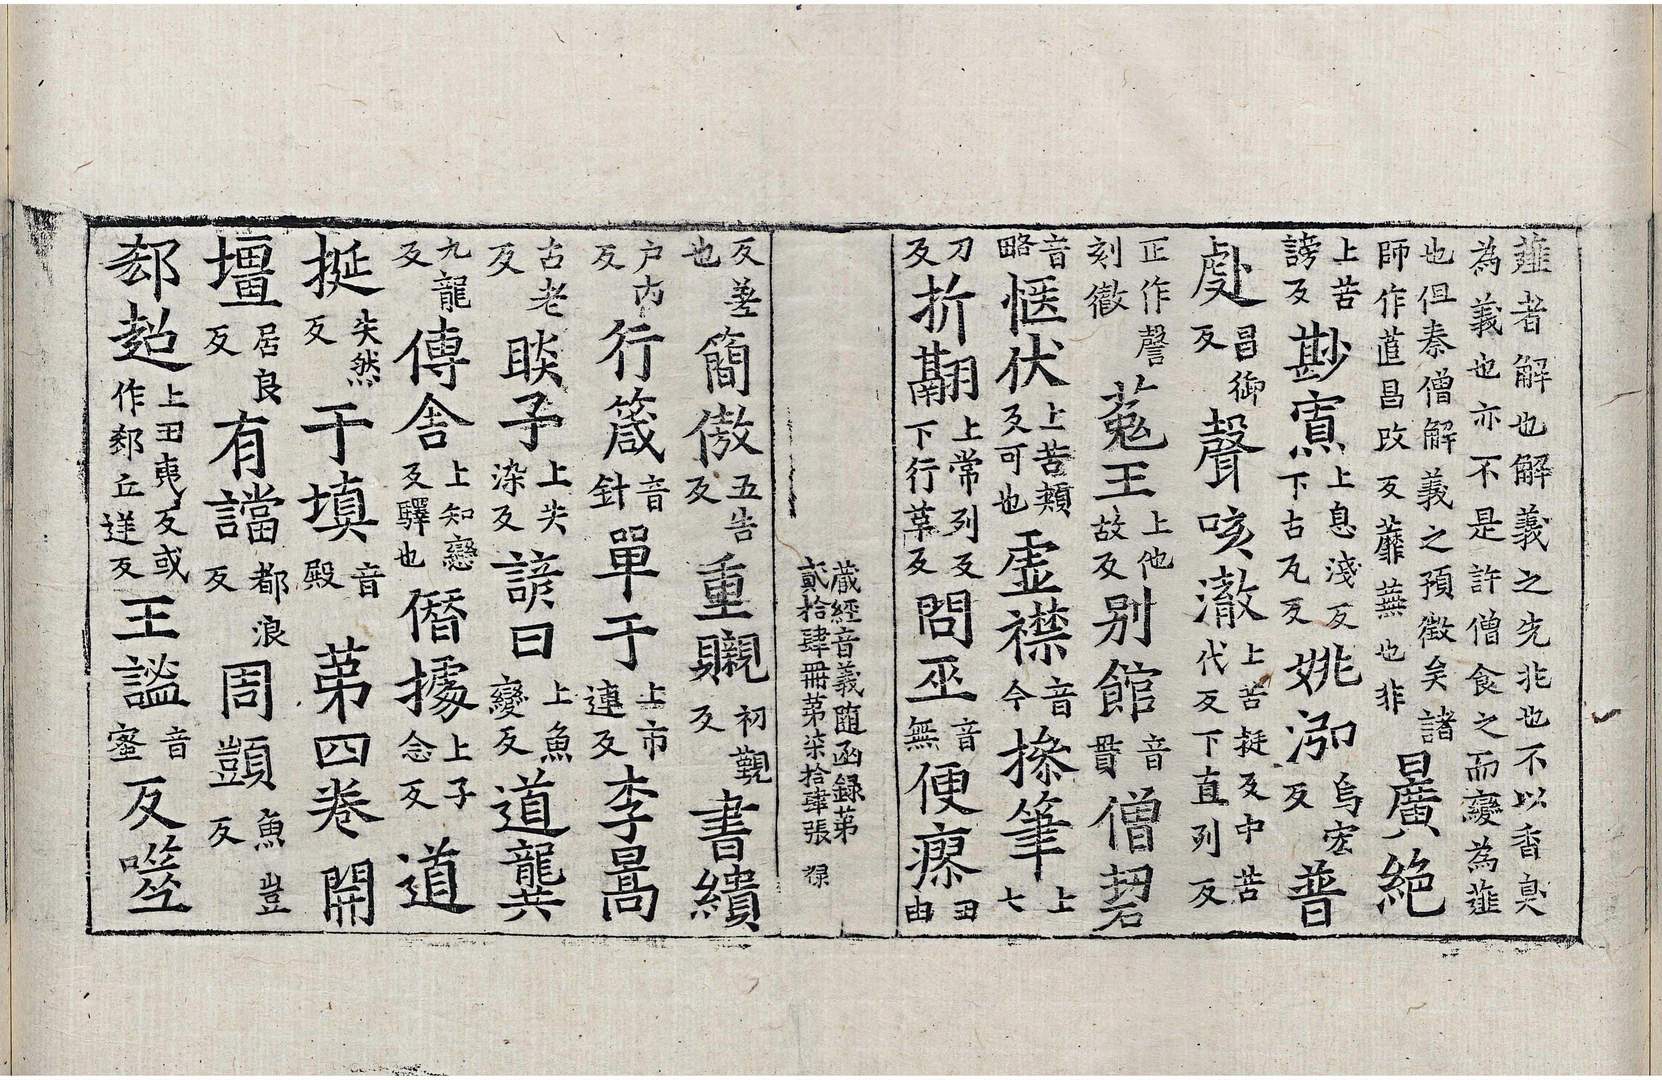 薤者解也解義之先非也不以香臭
為義也亦不是許僧食之而變為薤
也但秦僧解義之預徵矣諸
師作葅昌改反蘼蕪也非
曠絶
上苦謗反
尠
上息淺反下古瓦反
姚泓
烏宏反
普
處
昌御反
聲咳澈
上苦挺反中苦代反下直列反
正作謦刻徹
菟王
上他故反
別館
音貫
僧䂮
音略
愜伏
上苦頰反可也
虛襟
音今
搽筆
上七刀反
折翮
上常列反下行革反
問巫
音無
便瘳
丑由反差也
藏經音義随函録第
貳拾肆冊第柒拾肆張 禄
簡傲
五告反
重覼
初覲反
書繢
户內反
行箴
音針
單于
上市連反
李暠
古老反
睒子
上失染反
諺曰
上魚變反
道龔
九龍反
傳舍
上知戀反驛也
僭據
上子念反
道
挺
失然反
于填
音殿
第四卷
開
壇
居良反
有讜
都浪反
周顗
魚豈反
郄超
上丑夷反或作郄丘逆反
王謐
音蜜
反噬